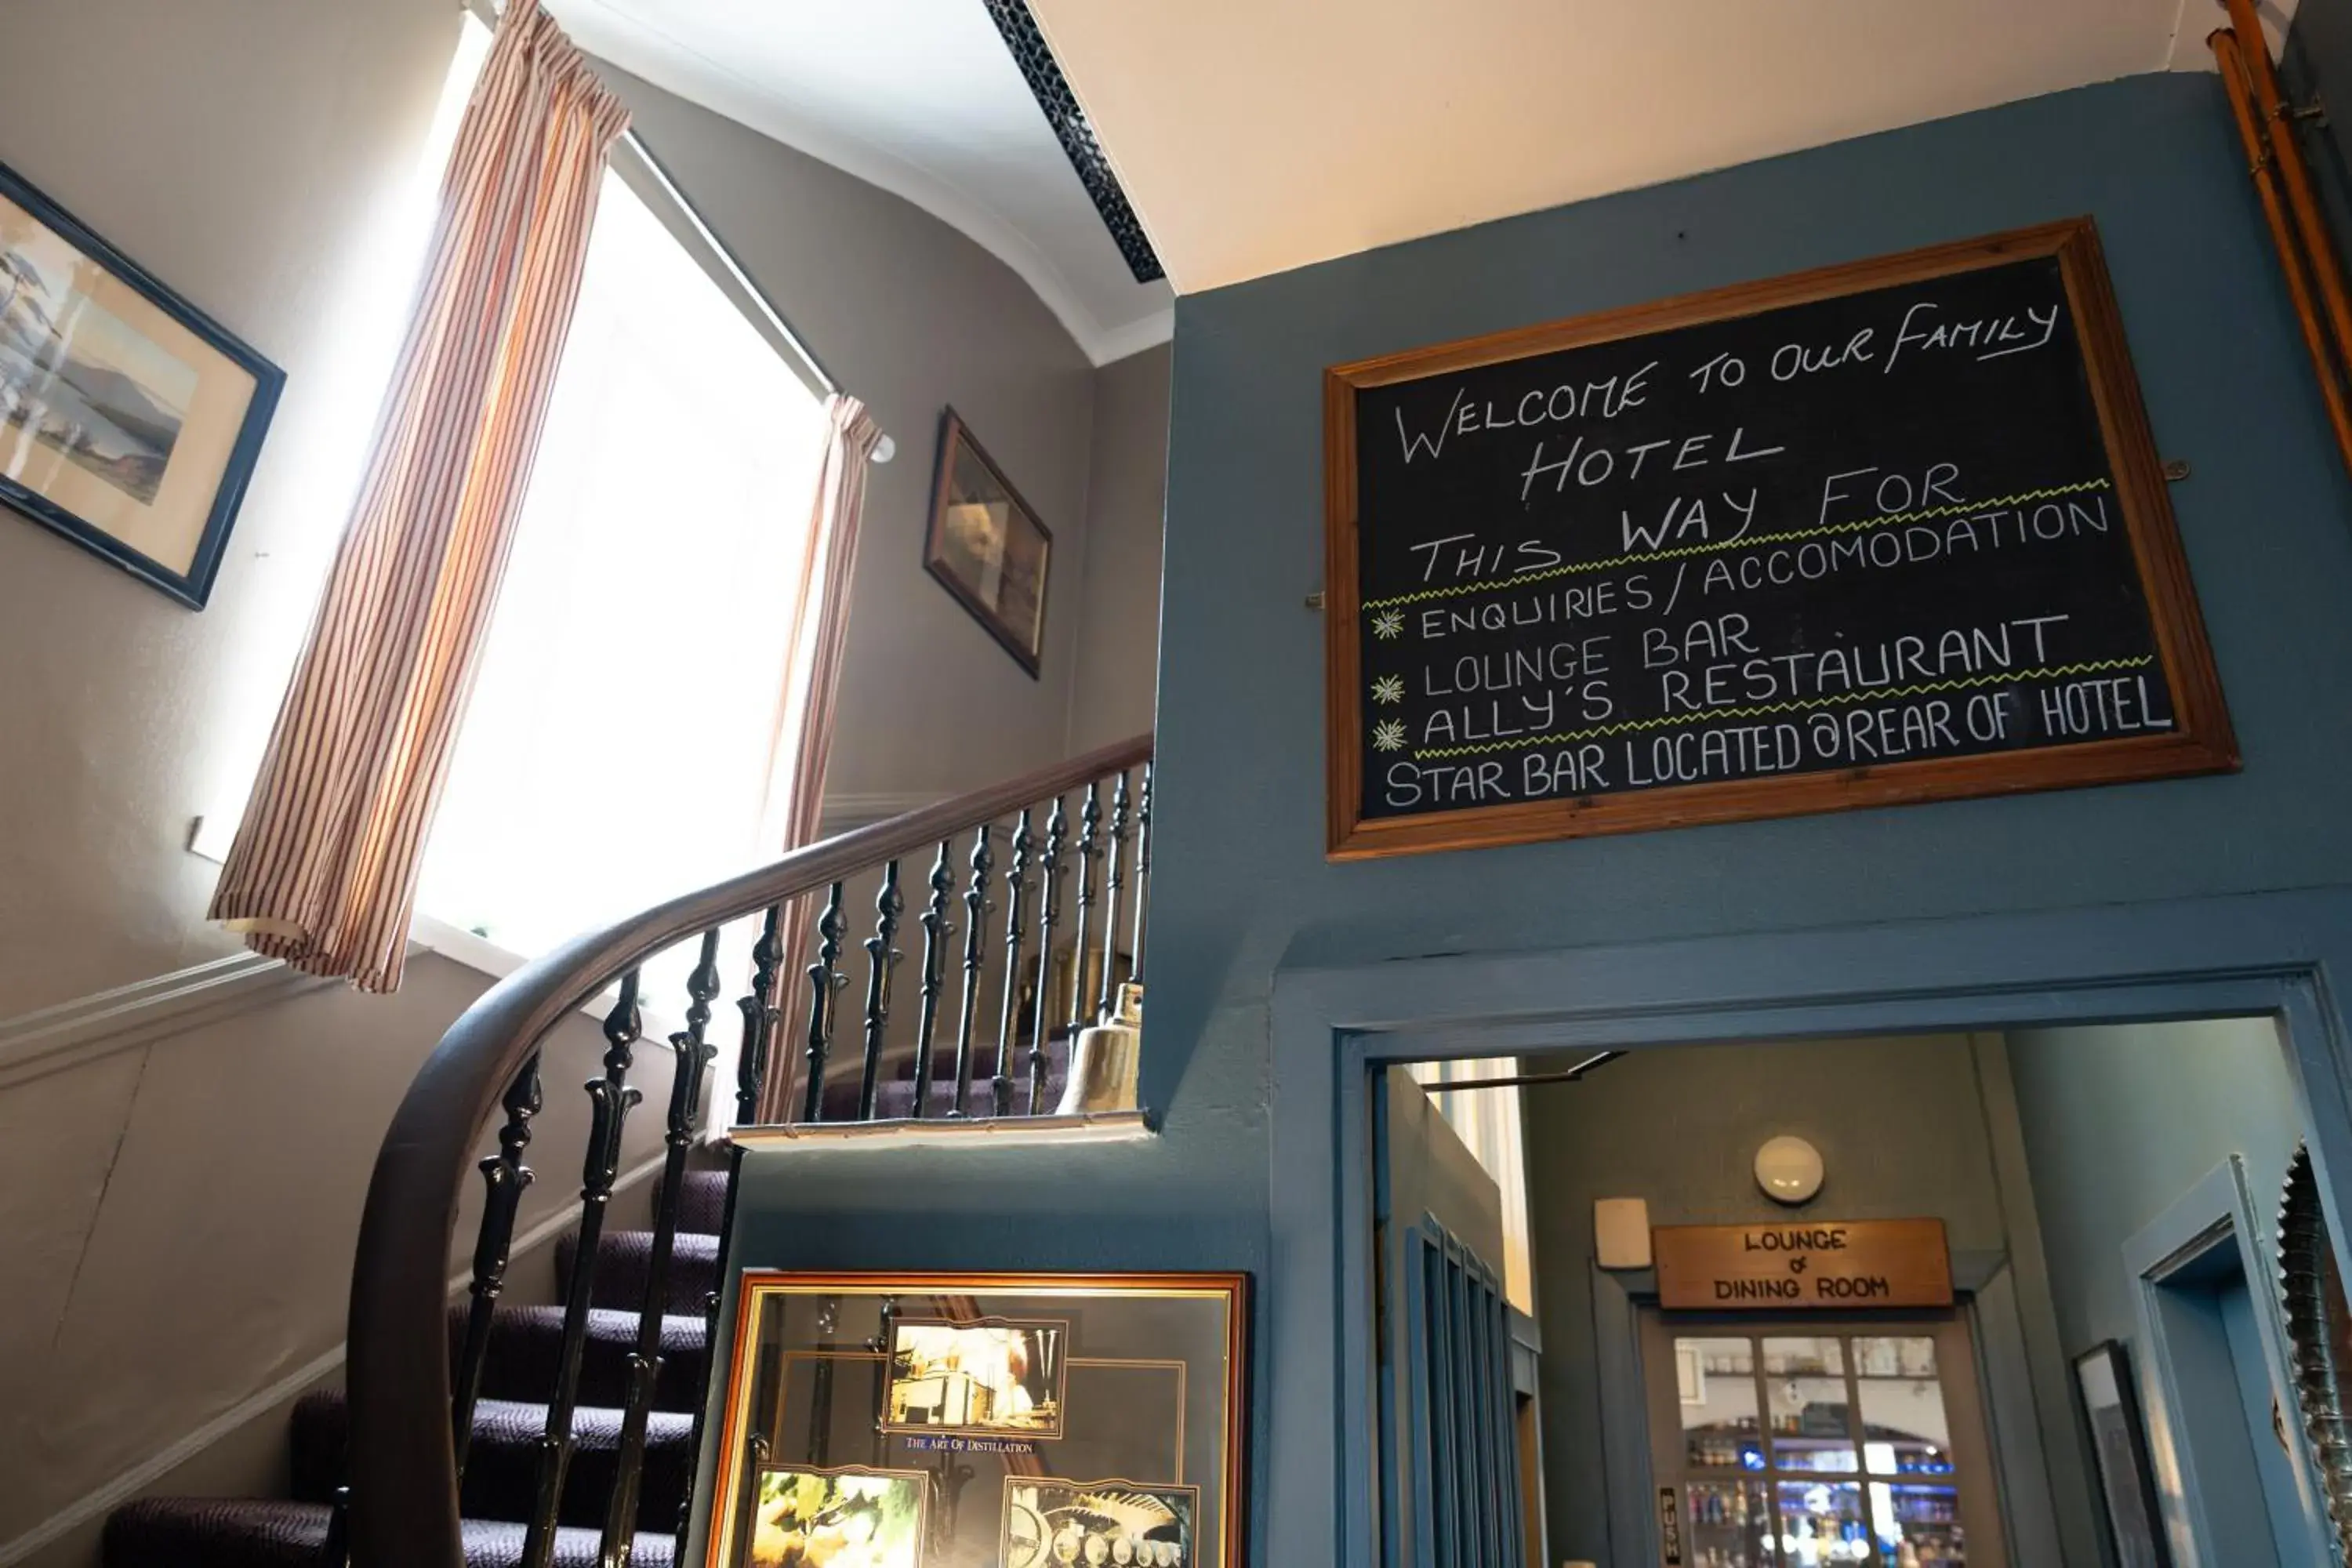 WELCOME TO OUR FAMILY
HOTEL
THIS WAY FOR
ENQUIRIES/ACCOMODATION
LOUNGE BAR
ALLY'S RESTAURANT
STAR BAR LOCATED @ REAR OF HOTEL
LOUNGE
&
DINING ROOM
THE ART OF DISTILLATION
PUSH